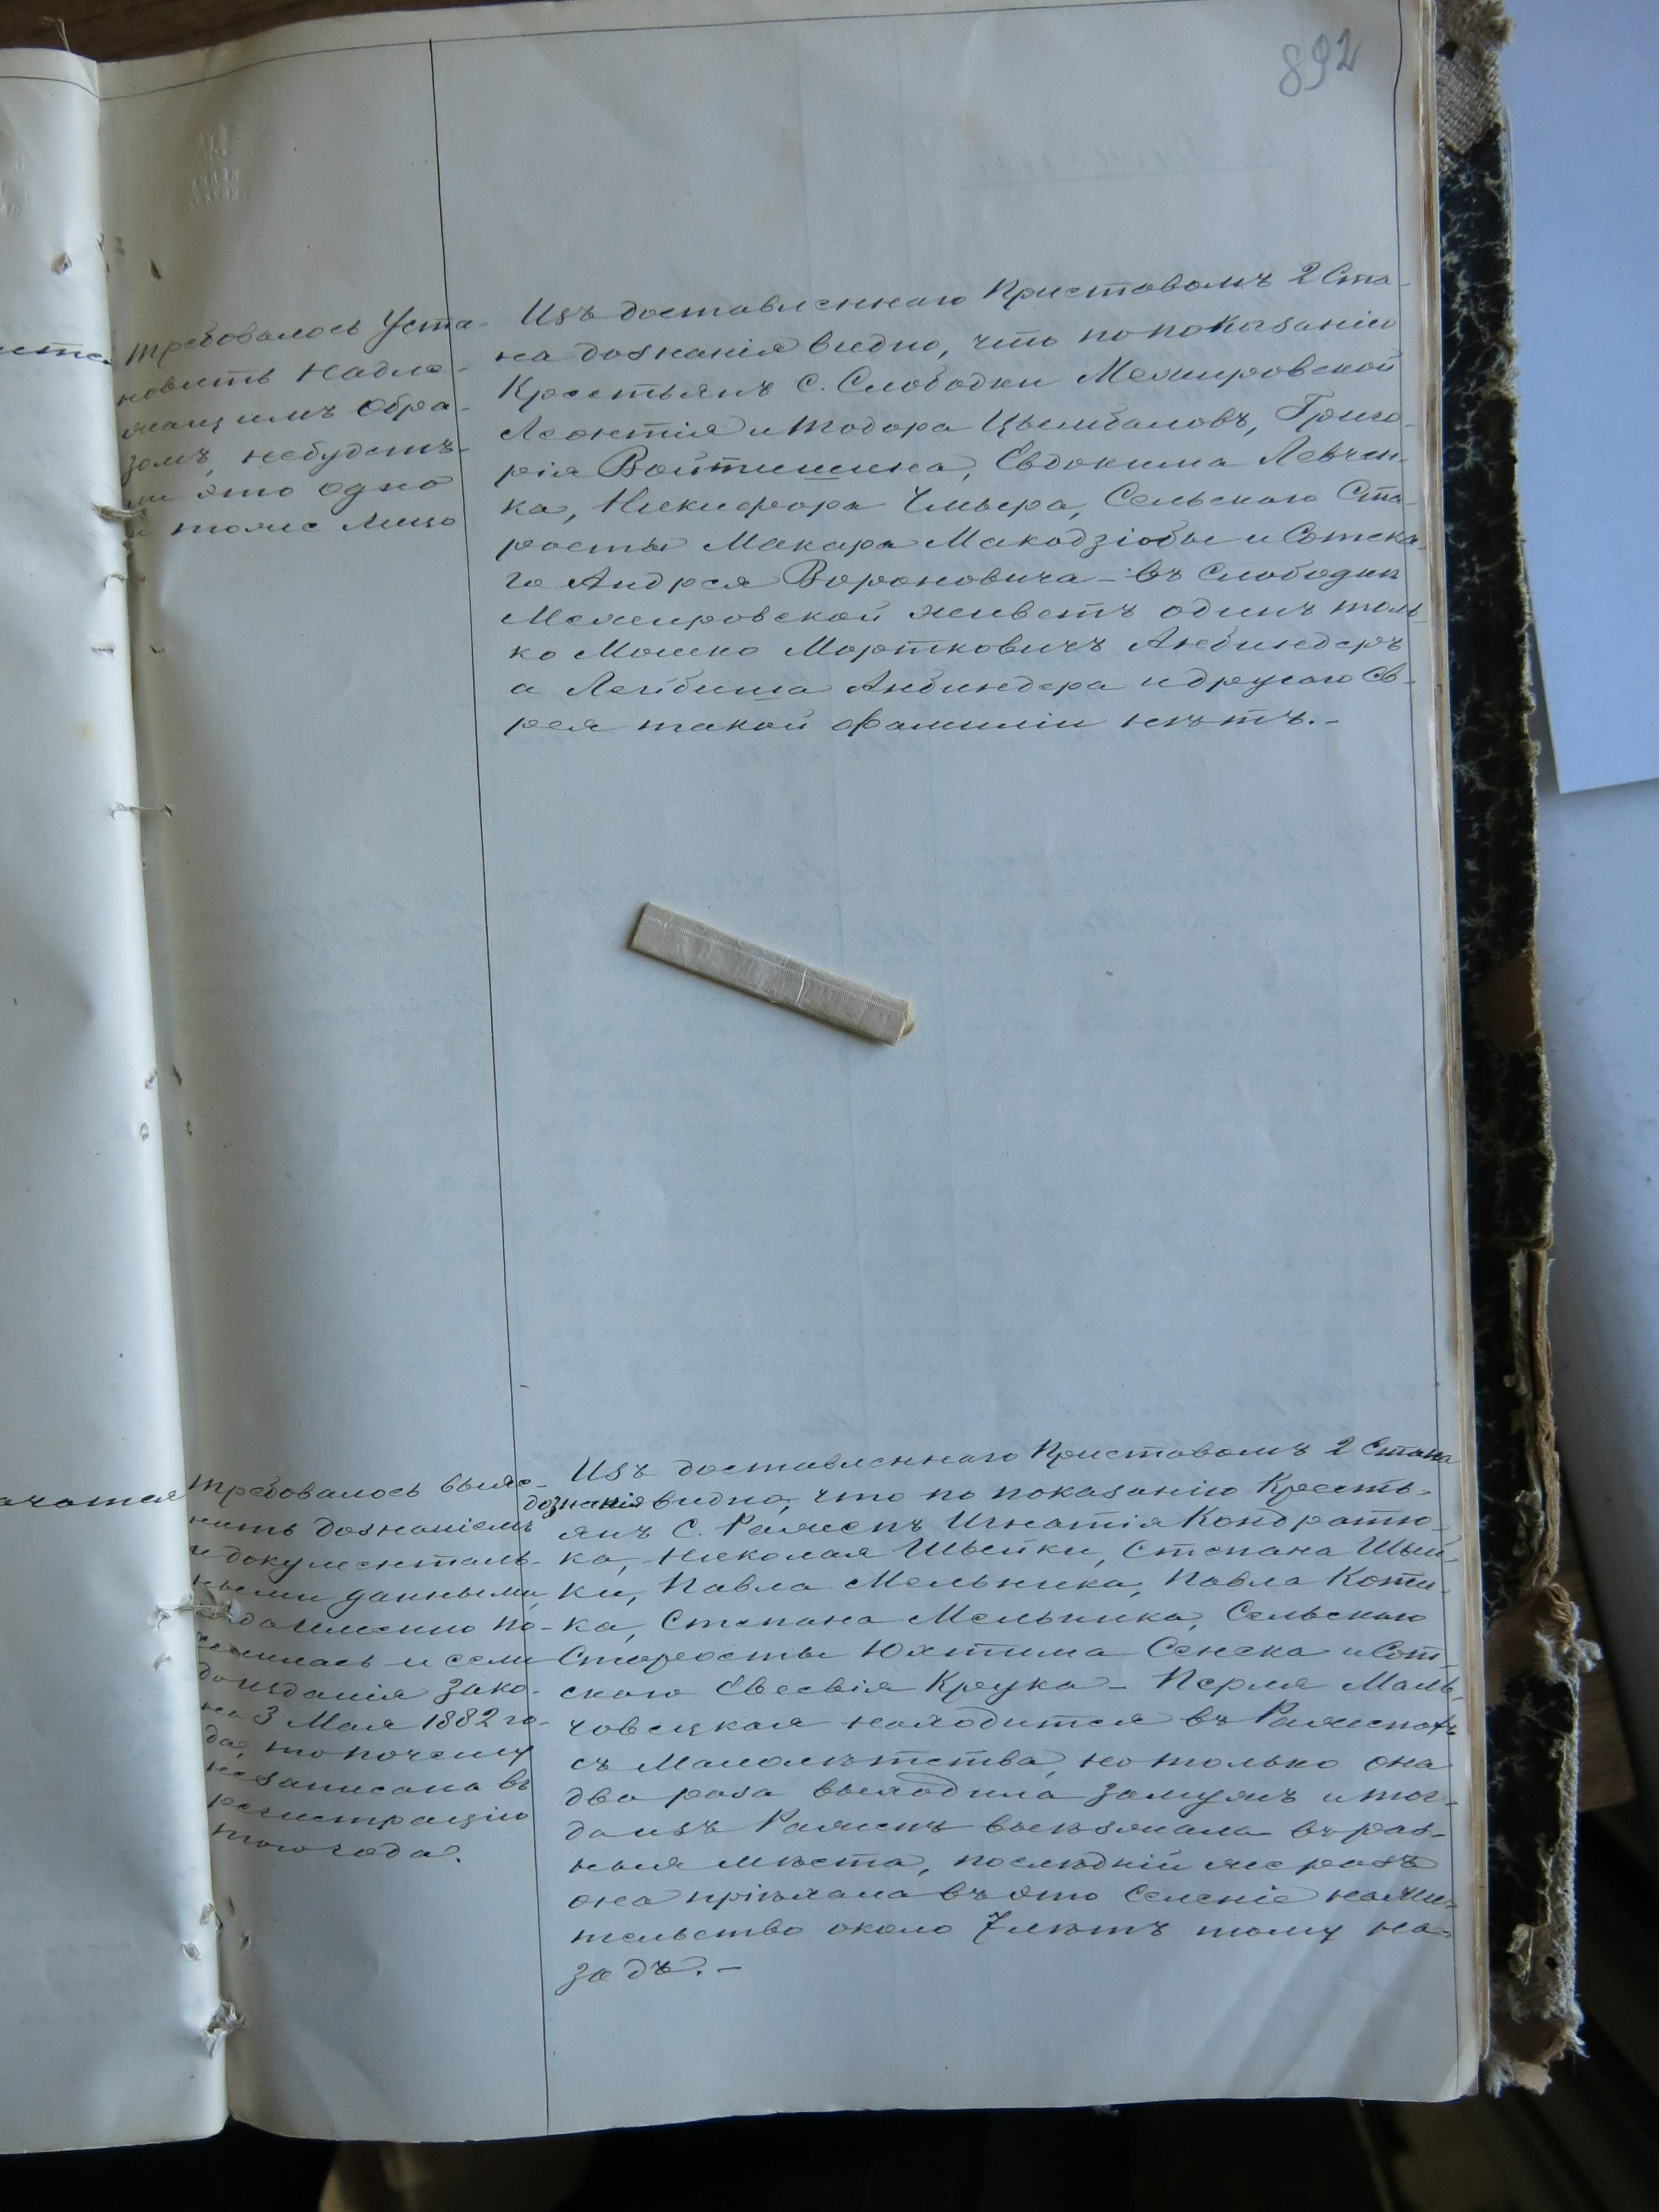 892
Требовалось Уста-
новить надле-
жащимъ обра-
зомъ, небудетъ-
ли это одно
и тоже лицо
Изъ доставленнаго Приставомъ 2 Ста-
на дознанія видно, что по показанію
Крестьянъ С. Слободки Межировской
Леонтія и Тодора Цымбаловъ, Григо-
рія Войтишина, Евдокима Левчен-
ка, Никифора Чмыера, Сельскаго Ста-
росты Макара Макодзіобы и Сотска-
го Андрея Вороновича – въ Слободкѣ
Межировской живетъ одинъ толь-
ко Мошко Мортковичъ Анбиндеръ
а Лейбиша Анбиндера и другаго Ев-
рея такой фамиліи нѣтъ. –
Требовалось выяс-
нить дознаніемъ
и документаль-
ными данными,
когда именно по-
селилась и если
до изданія зако-
на 3 Мая 1882 го-
да, то почему
не записана въ
регистрацію
того года.
Изъ доставленнаго Приставомъ 2 Стана
дознанія видно, что по показанію Кресть-
янъ С. Ражепъ Игнатія Кондратю-
ка, Николая Швейки, Степана Швей-
ки, Павла Мельника, Павла Коти-
ка, Степана Мельника, Сельскаго
Старосты Юхтима Сенека и Сот-
скаго Евсевія Крука – Перля Маль-
човецкая находится въ Ражепахъ
съ Малолѣтства, но только она
два раза выходила замужъ и тог-
да изъ Ражепъ выѣзжала въ раз-
ныя мѣста, послѣдній же разъ
она пріѣхала въ это Селеніе на жи-
тельство около 7 лѣтъ тому на-
задъ. –